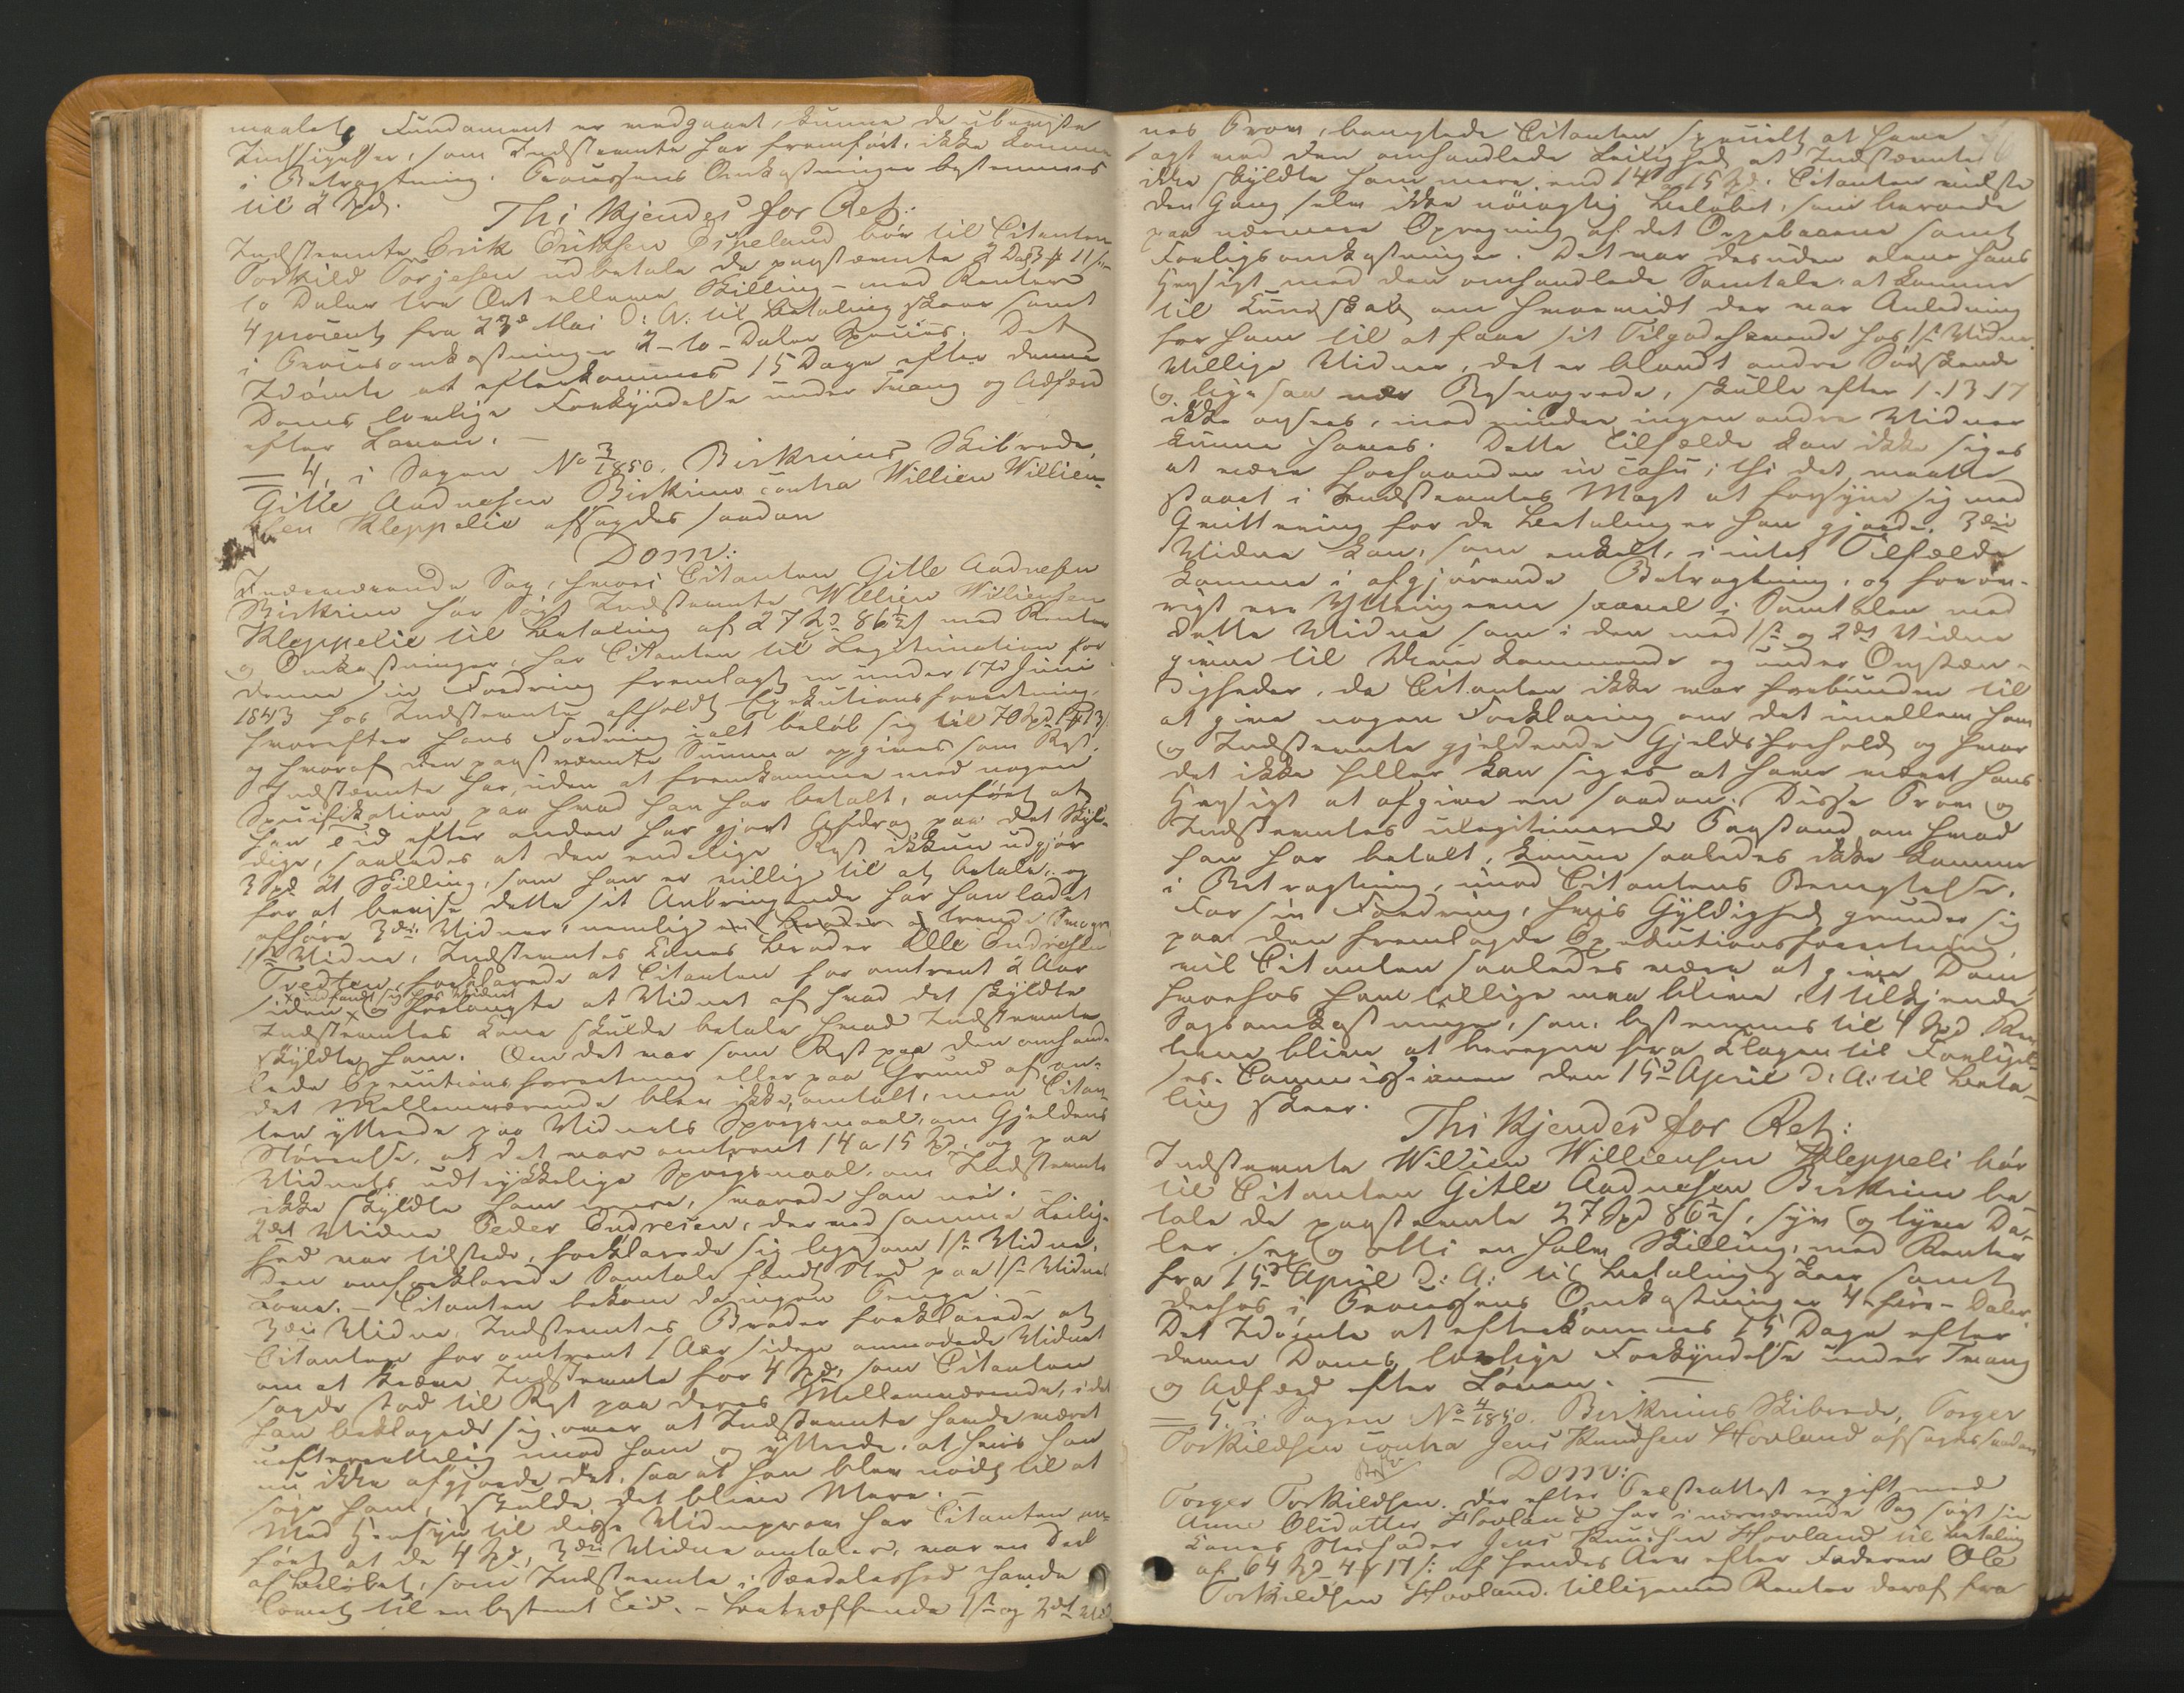 maalets Fundament er medgaaet, kunne de ubeviste
Indsigelser, som Indstevnte har fremført, ikke komme
i Betragtning. Processens Omkostninger bestemmes
til 2 Spd.
Thi kjendes for Ret:
Indstevnte Erik Eriksen Eigeland bør til Citanten
Torkild Torjesen udbetale de paastævnte 2 Dlr 3 ₰ 11 s –
to Daler tre Ort elleve Skilling – med Renter
4 procent fra 23de Mai d: A: til Betaling skeer samt
i Procesomkostninger 2 – to – Daler Species. Det
Idømte at efterkommes 15 Dage efter denne
Doms lovlige Forkyndelse under Tvang og Adfærd
efter Loven. –
= 4, i Sagen No 3/1850. Birkrims Skibrede,
Gitle Aadnesen Birkrim contra Willien Willien-
sen Kleppelie afsagdes saadan
Dom:
I nærværende Sag, hvori Citanten Gitle Aadnesen
Birkrim har søgt Indstevnte Willien Williensen
Kleppelie til Betaling af 27 Spd 86½ s med Renter
og Omkostninger, har Citanten til Legitimation for
denne sin Fordring fremlagt en under 17de Juni
1843 hos Indstevnte afholdt Exekutionsforretning,
hvorefter hans Fordring ialt beløb sig til 70 Spd 1 ₰ 13 s
og hvoraf den paastævnte Summa opgives som Rest.
Indstævnte har, uden at fremkomme med nogen
Specifikation paa hvad han har betalt, anført at
han Tid efter anden har gjort Afdrag paa det Skyl-
dige, saaledes at den endelige Rest ikkun udgjør
3 Spd 21 Skilling, som han er villig til at betale, og
for at bevise dette sit Anbringende har han ladet
afhøre 3de Vidner, nemlig en Broder og trende Svogre
1ste Vidne, Indstevntes Kones Broder Elle Endresen
Tredten, forklarede at Citanten for omtrent 2 Aar
siden x indfandt sig hos Vidnet og forlangte at Vidnet af hvad det skyldte
Indstevntes Kone skulde betale hvad Indstevnte
skyldte ham. Om det var som Rest paa den omhand-
lede Executionsforretning eller paa Grund af an-
det Mellemværende blev ikke omtalt, men Citan-
ten yttrede paa Vidnets Spørgsmaal, om Gjeldens
Størrelse, at det var omtrent 14 a 15 Spd, og paa
Vidnets udtrykkelige Spørgsmaal, om Indstevnte
ikke skyldte ham mere, svarede han nei. –
2det Vidne Peder Endresen, der ved samme Leilig-
hed var tilstede, forklarede sig ligesom 1ste Vidne.
Den omforklarede Samtale fandt Sted paa 1ste Vidnes
– Citanten bekom da ingen Penge. –
3die Vidne, Indstevntes Broder forklarede at
Citanten for omtrent 1 Aar siden anmodede Vidnet
om at kræve Indstevnte for 4 Spd, som Citanten
sagde stod til Rest paa deres Mellemværende, idet
han beklagede sig over at Indstevnte havde været
uefterrettelig imod ham og yttrede, at hvis han
nu ikke afgjorde det, saa at han blev nødt til at
søge ham, skulde det blive Mere. –
Med Hensyn til disse Vidneprov har Citanten an-
ført at de 4 Spd, 3die Vidne omtaler, var en Deel
af Beløbet, som Indstevnte i Særdeleshed havde
lovet til en bestemt Tid. – Betræffende 1ste og 2det Vid-
nes Prov, benegtede Citanten specielt at have
sagt med den omhandlede Leilighed at Indstævnte
ikke skyldte ham mere end 14 a 15 Spd. Citanten vidste
den Gang selv ikke nøiagtig Beløbet, som beroede
paa nærmere Opregning af det Oppebaarne samt
Forligsomkostninger. Det var desuden alene hans
Hensigt med den omhandlede Samtale at komme
til Kundskab om hvorvidt der var Anledning
for ham til at faae sit Tilgodehavende hos 1ste Vidne.
Villige Vidner, det er blandt andre Sødskende
og lige saa nær Besvogrede, skulle efter 1-13-17
ikke ansees, med mindre ingen andre Vidner
kunne haves. Dette Tilfælde kan ikke siges
at være forhaanden in casu; thi det maatte
staaet i Indstevntes Magt at forsyne sig med
Qvittering for de Betalinger han gjorde. 3die
Vidne kan, som enkelt, i intet Tilfælde
komme i afgjørende Betragtning, og forøv-
rigt ere Yttringerne saavel i Samtalen med
dette Vidne som i den med 1ste og 2det Vidne
givne til Vedkommende og under Omstæn-
digheder, da Citanten ikke var forbunden til
at give nogen Forklaring om det imellem ham
og Indstevnte gjeldende Gjeldsforhold og hvor
det ikke heller kan siges at have været hans
Hensigt at afgive en saadan. Disse Prov og
Indstevntes ulegitimerede Paastand om hvad
han har betalt, kunne saaledes ikke komme
i Betragtning, imod Citantens Benegtelse.
For sin Fordring, hvis Gyldighed grunder sig
paa den fremlagde Exekutionsforretning,
vil Citanten saaledes være at give Dom,
hvorhos ham tillige maa blive at tilkjende
Sagsomkostninger, som bestemmes til 4 Spd Ren-
terne blive at beregne fra Klagen til Forligel-
ses-Commissionen den 15de April d: A: til Beta-
ling skeer.
Thi kjendes for Ret:
Indstevnte Willien Williensen Kleppeli bør
til Citanten Gitle Aadnesen Birkrim be
tale de paastevnte 27 Spd 86½ s, syv og tyve Da-
ler sex og otti en halv Skilling, med Renter
fra 15de April d: A: til Betaling skeer samt
derhos i Processens Omkostninger 4 – fire – Daler.
Det Idømte at efterkommes 15 Dage efter
denne Doms lovlige Forkyndelse under Tvang
og Adfærd efter Loven. –
= 5. i Sagen No 4/1850. Birkrims Skibrede, Torger
Torkildsen contra Jens Knudsen Hovland afsagdes saadan
Dom:
Torger Torkildsen, der efter Presteattest er gift med
Anne Olsdatter Hovland har i nærværende Sag søgt sin
Kones Stedfader Jens Knudsen Hovland til Betaling
af 64 Spd 4 ₰ 17 s: af hendes Arv efter Faderen Ole
Torkildsen Hovland tilligemed Renter deraf fra